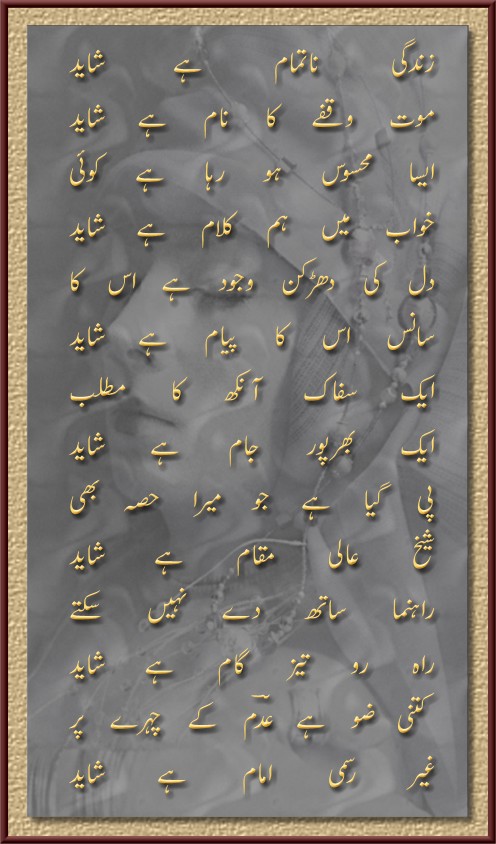 زندگی ناتمام ہے شاید
موت وقفے کا نام ہے شاید
ایسا محسوس ہو رہا ہے کوئی
خواب میں ہم کلام ہے شاید
دل کی دھڑکن وجود ہے اس کا
سانس اس کا پیام ہے شاید
ایک سفاک آنکھ کا مطلب
ایک بھرپور جام ہے شاید
پی گیا ہے جو میرا حصہ بھی
شیخ عالی مقام ہے شاید
راہنما ساتھ دے نہیں سکتے
راہ رو تیز گام ہے شاید
کتنی ضو ہے عدمؔ کے چہرے پر
غیر رسمی امام ہے شاید